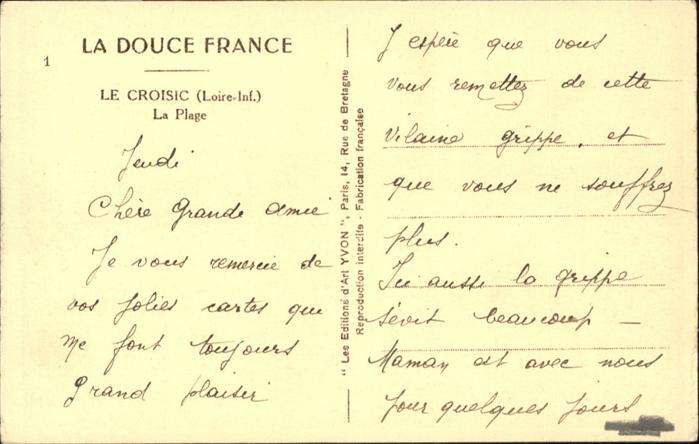 1
LA DOUCE FRANCE
LE CROISIC (Loire-Inf.)
La Plage
Jeudi
Chère Grande Amie
Je vous remercie de
vos jolies cartes qui
me font toujours
grand plaisir
" Les Editions d'Art YVON ", Paris, 14, Rue de Bretagne
Reproduction interdite - Fabrication française
J'espère que vous
vous remettez de cette
vilaine grippe, et
que vous ne souffrez
plus.
Ici aussi la grippe
sévit beaucoup —
Maman est avec nous
pour quelques jours